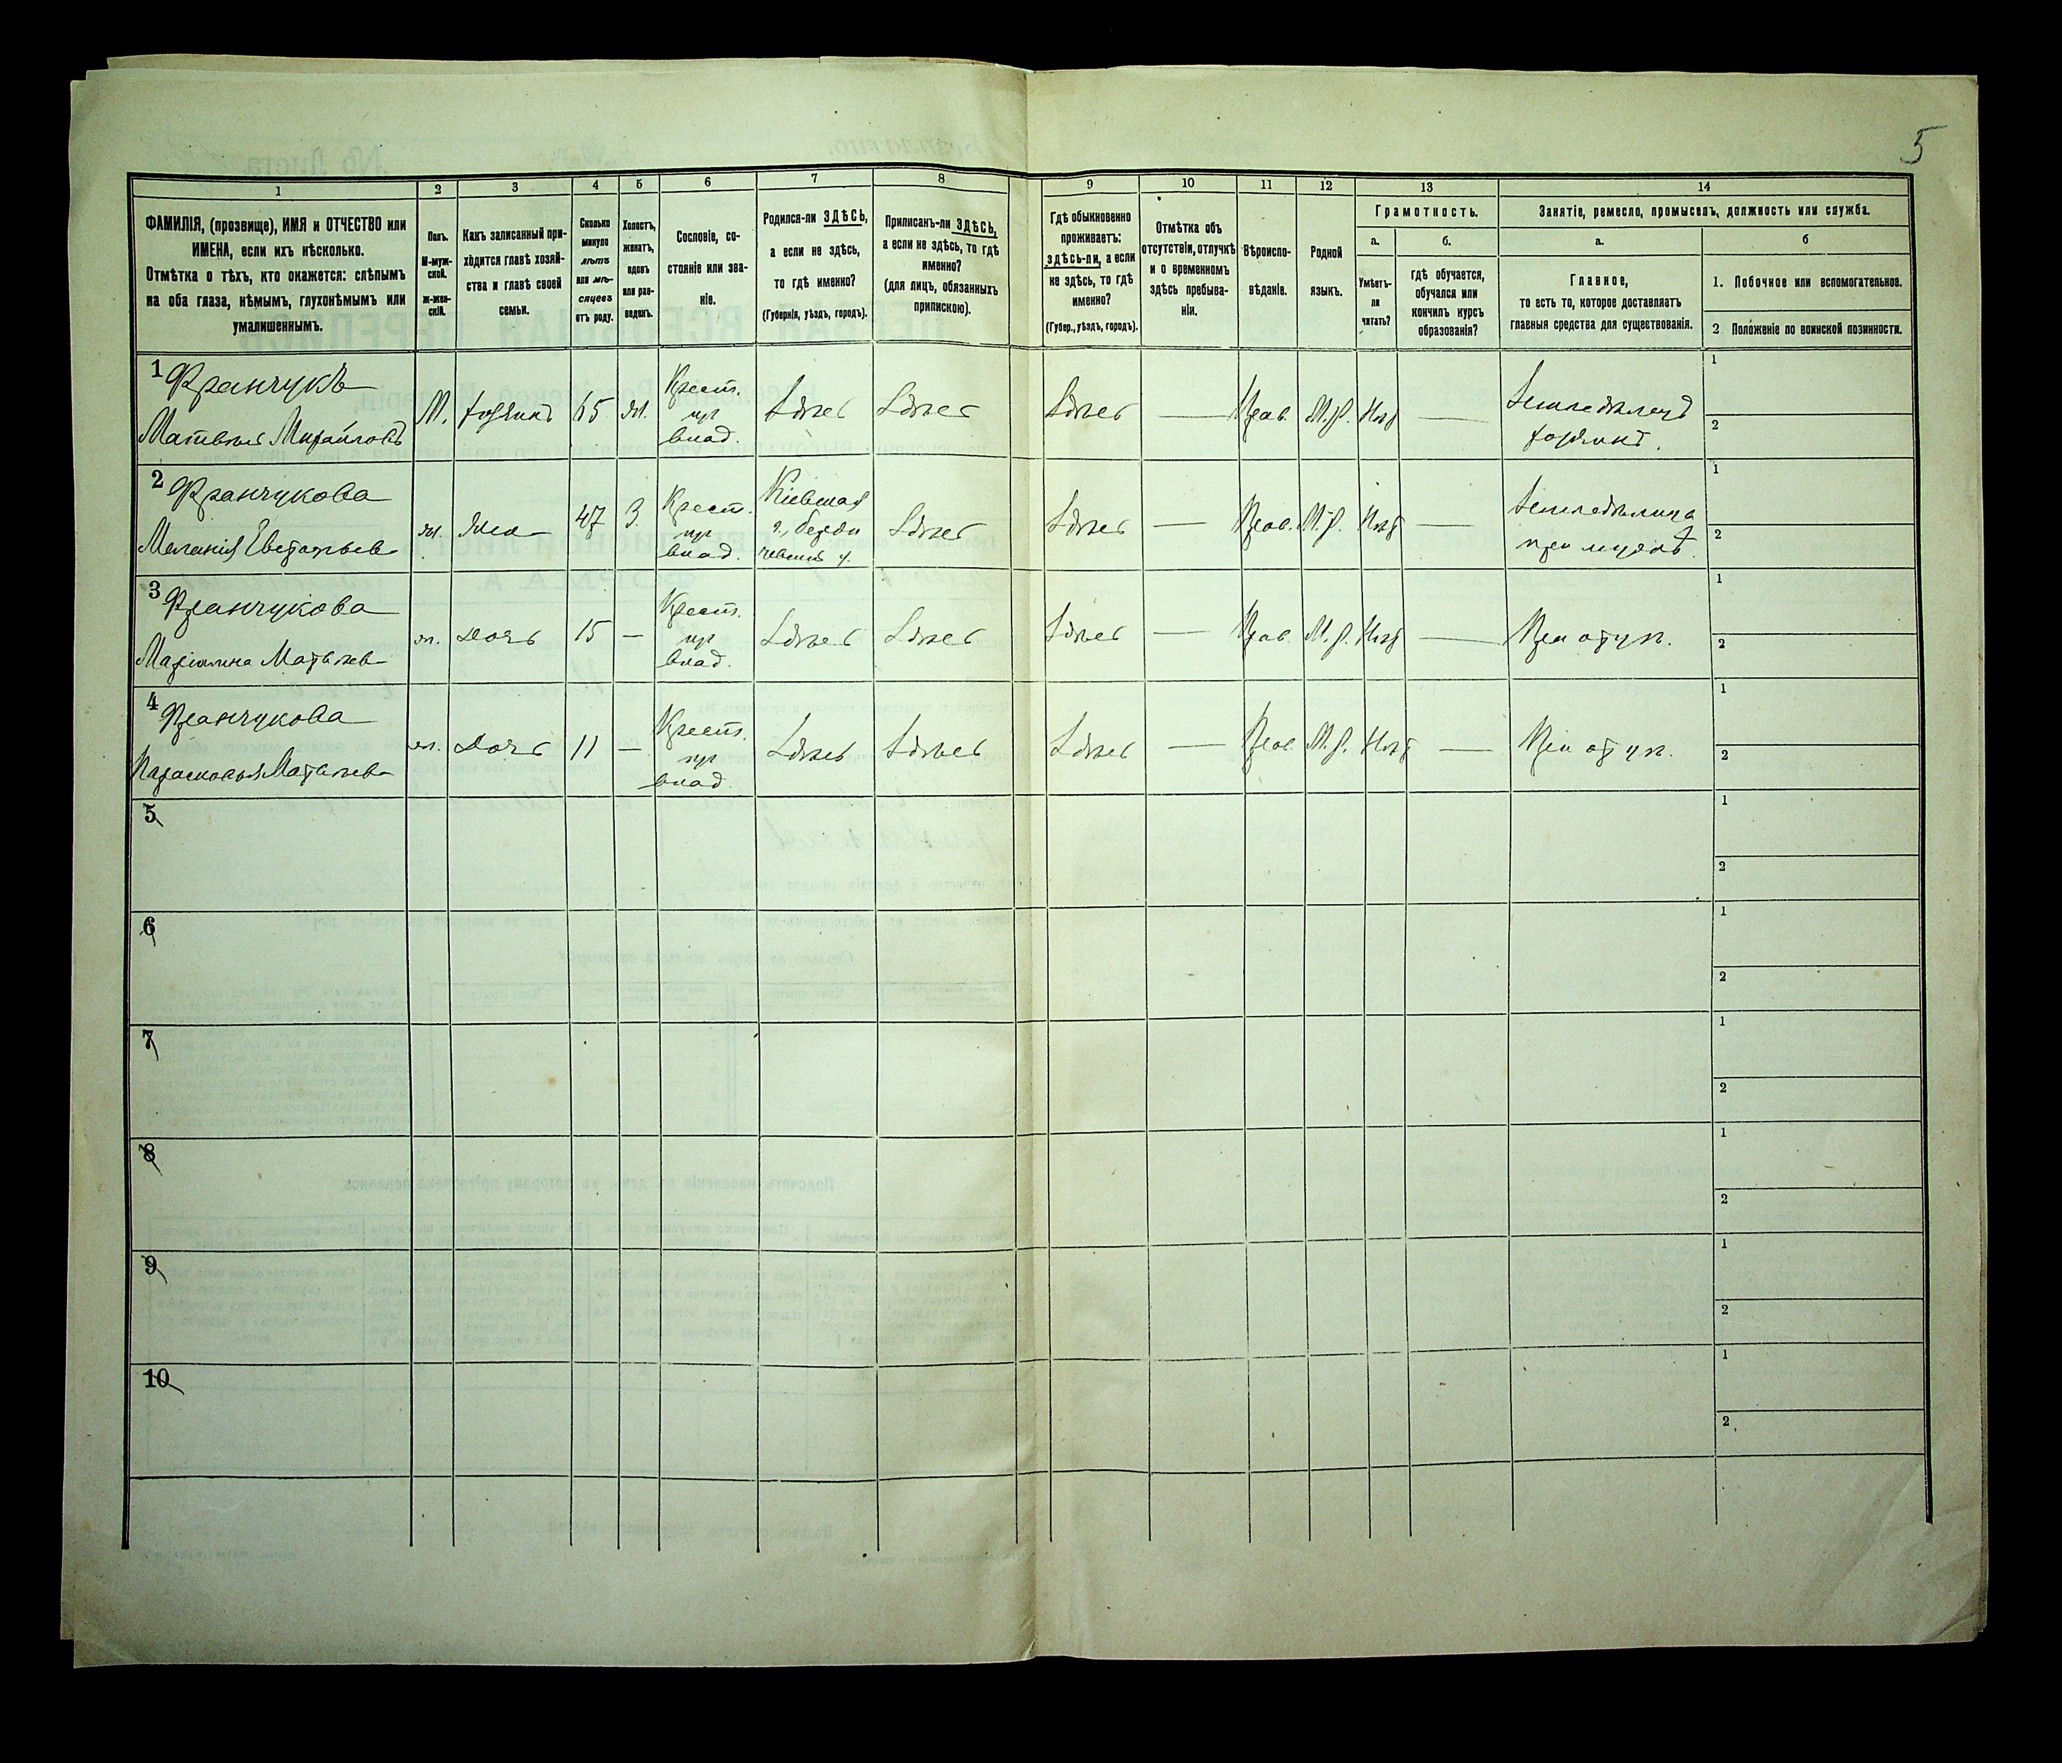 5
1 2 3 4 5 6 7 8 9 10 11 12 13 14
ФАМИЛІЯ, (прозвище), ИМЯ и ОТЧЕСТВО или
ИМЕНА, если ихъ нѣсколько.
Отмѣтка о тѣхъ, кто окажется: слѣпымъ
на оба глаза, нѣмымъ, глухонѣмымъ или
умалишеннымъ.
Полъ.
М-муж-
ской.
ж-жен-
скій.
Какъ записанный при-
ходится главѣ хозяй-
ства и главѣ своей
семьи.
Сколько
минуло
лѣтъ
или мѣ-
сяцевъ
отъ роду.
Холостъ,
женатъ,
вдовъ
или раз-
веденъ.
Сословіе, со-
стояніе или зва-
ніе.
Родился-ли ЗДѢСЬ,
а если не здѣсь,
то гдѣ именно?
(Губернія, уѣздъ, городъ).
Приписанъ-ли ЗДѢСЬ,
а если не здѣсь, то гдѣ
именно?
(для лицъ, обязанныхъ
припискою).
Гдѣ обыкновенно
проживаетъ:
здѣсь-ли, а если
не здѣсь, то гдѣ
именно?
(Губер., уѣздъ, городъ).
Отмѣтка объ
отсутствіи, отлучкѣ
и о временномъ
здѣсь пребыва-
ніи.
Вѣроиспо-
вѣданіе.
Родной
языкъ.
Грамотность.
а.
Умѣетъ-
ли
читать?
б.
гдѣ обучается,
обучался или
кончилъ курсъ
образованія?
Занятіе, ремесло, промыселъ, должность или служба.
а.
Главное,
то есть то, которое доставляетъ
главныя средства для существованія.
б
1. Побочное или вспомогательное.
2 Положеніе по воинской повинности.
1 Франчукъ
Матвѣй Михайловъ
М.
хозяинъ
65
ж.
Крест.
изъ
влад.
Здѣсь
Здѣсь
Здѣсь
—
Прав.
М.р.
Нѣтъ
—
Земледѣлецъ
хозяинъ.
1
2
2 Франчукова
Меланія Евстафьев
ж.
жена
47
З.
Крест.
изъ
влад.
Кіевская
г., Берди
чевскій у.
Здѣсь
Здѣсь
—
Прав.
М.р.
Нѣтъ
—
Земледѣлица
при мужѣ.
1
2
3 Франчукова
Маріанна Матвѣев
ж.
дочь
15
—
Крест.
изъ
влад.
Здѣсь
Здѣсь
Здѣсь
—
Прав.
М.р.
Нѣтъ
—
При отцѣ.
1
2
4 Франчукова
Парасковья Матвѣев
ж.
дочь
11
—
Крест.
изъ
влад.
Здѣсь
Здѣсь
Здѣсь
—
Прав.
М.р.
Нѣтъ
—
При отцѣ.
1
2
5
1
2
6
1
2
7
1
2
8
1
2
9
1
2
10
1
2